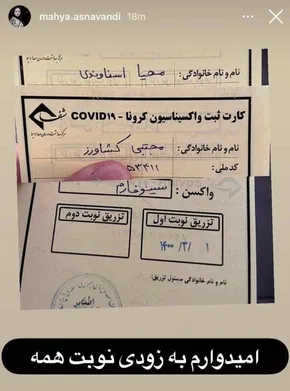 mahya.asnavandi 18m
نام و نام خانوادگی: محیا اسناوندی
کارت ثبت واکسیناسیون کرونا - COVID۱۹
نام و نام خانوادگی: مجتبی کشاورز
کدملی: ۵۳۴۱۱
واکسن: سینوفارم
تزریق نوبت اول
تزریق نوبت دوم
۱۴۰۰/۲/۱
نام و نام خانوادگی مسئول تزریق:
امیدوارم به زودی نوبت همه